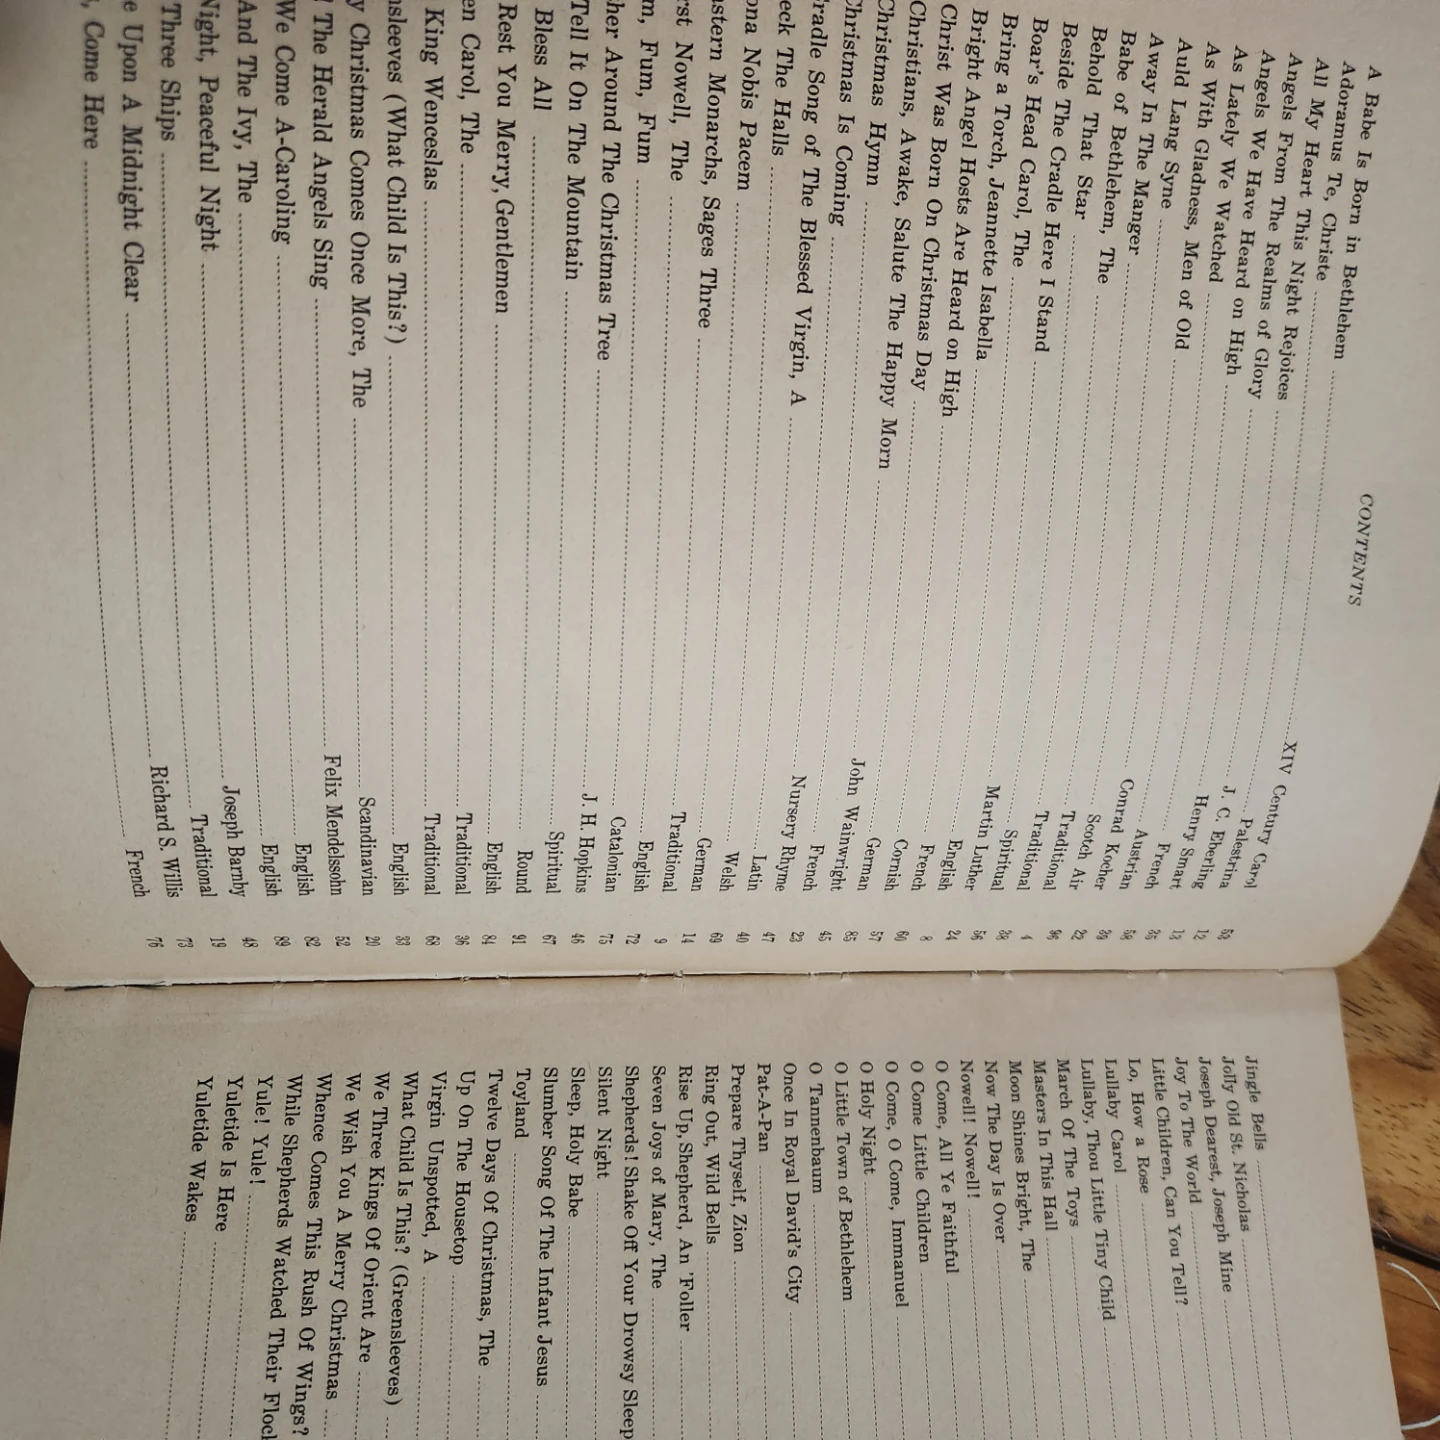 CONTENTS
A Babe Is Born in Bethlehem XIV Century Carol 53
Adoramus Te, Christe Palestrina 12
All My Heart This Night Rejoices J. C. Eberling 13
Angels From The Realms of Glory Henry Smart 35
Angels We Have Heard on High French 58
As Lately We Watched Austrian 39
As With Gladness, Men of Old Conrad Kocher 22
Auld Lang Syne Scotch Air 96
Away In The Manger Traditional 4
Babe of Bethlehem, The Traditional 38
Behold That Star Spiritual 56
Beside The Cradle Here I Stand Martin Luther 24
Boar's Head Carol, The English 8
Bring a Torch, Jeannette Isabella French 60
Bright Angel Hosts Are Heard on High Cornish 57
Christ Was Born On Christmas Day German 85
Christians, Awake, Salute The Happy Morn John Wainwright 45
Christmas Hymn French 23
Christmas Is Coming Nursery Rhyme 47
radle Song of The Blessed Virgin, A Latin 40
eck The Halls Welsh 69
ona Nobis Pacem German 14
astern Monarchs, Sages Three Traditional 9
rst Nowell, The English 72
m, Fum, Fum Catalonian 75
her Around The Christmas Tree J. H. Hopkins 46
Tell It On The Mountain Spiritual 67
Bless All Round 91
Rest You Merry, Gentlemen English 84
en Carol, The Traditional 36
King Wenceslas Traditional 68
nsleeves (What Child Is This?) English 33
y Christmas Comes Once More, The Scandinavian 20
! The Herald Angels Sing Felix Mendelssohn 52
We Come A-Caroling English 82
And The Ivy, The English 89
Night, Peaceful Night Joseph Barnby 48
Three Ships Traditional 19
e Upon A Midnight Clear Richard S. Willis 73
, Come Here French 76
Jingle Bells
Jolly Old St. Nicholas
Joseph Dearest, Joseph Mine
Joy To The World
Little Children, Can You Tell?
Lo, How a Rose
Lullaby Carol
Lullaby, Thou Little Tiny Child
March Of The Toys
Masters In This Hall
Moon Shines Bright, The
Now The Day Is Over
Nowell! Nowell!
O Come, All Ye Faithful
O Come Little Children
O Come, O Come, Immanuel
O Holy Night
O Little Town of Bethlehem
O Tannenbaum
Once In Royal David's City
Pat-A-Pan
Prepare Thyself, Zion
Ring Out, Wild Bells
Rise Up, Shepherd, An 'Foller
Seven Joys of Mary, The
Shepherds! Shake Off Your Drowsy Sleep
Silent Night
Sleep, Holy Babe
Slumber Song Of The Infant Jesus
Toyland
Twelve Days Of Christmas, The
Up On The Housetop
Virgin Unspotted, A
What Child Is This? (Greensleeves)
We Three Kings Of Orient Are
We Wish You A Merry Christmas
Whence Comes This Rush Of Wings?
While Shepherds Watched Their Floc
Yule! Yule!
Yuletide Is Here
Yuletide Wakes